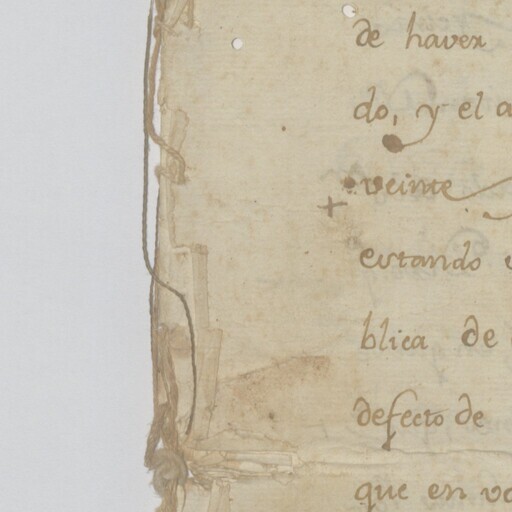 de haver
do, y el a
+ veinte
estando
blica de
defecto de
que en vo